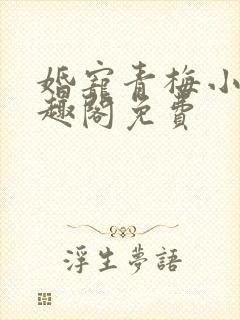 婚寵青梅小
趣閣免費
浮生夢語